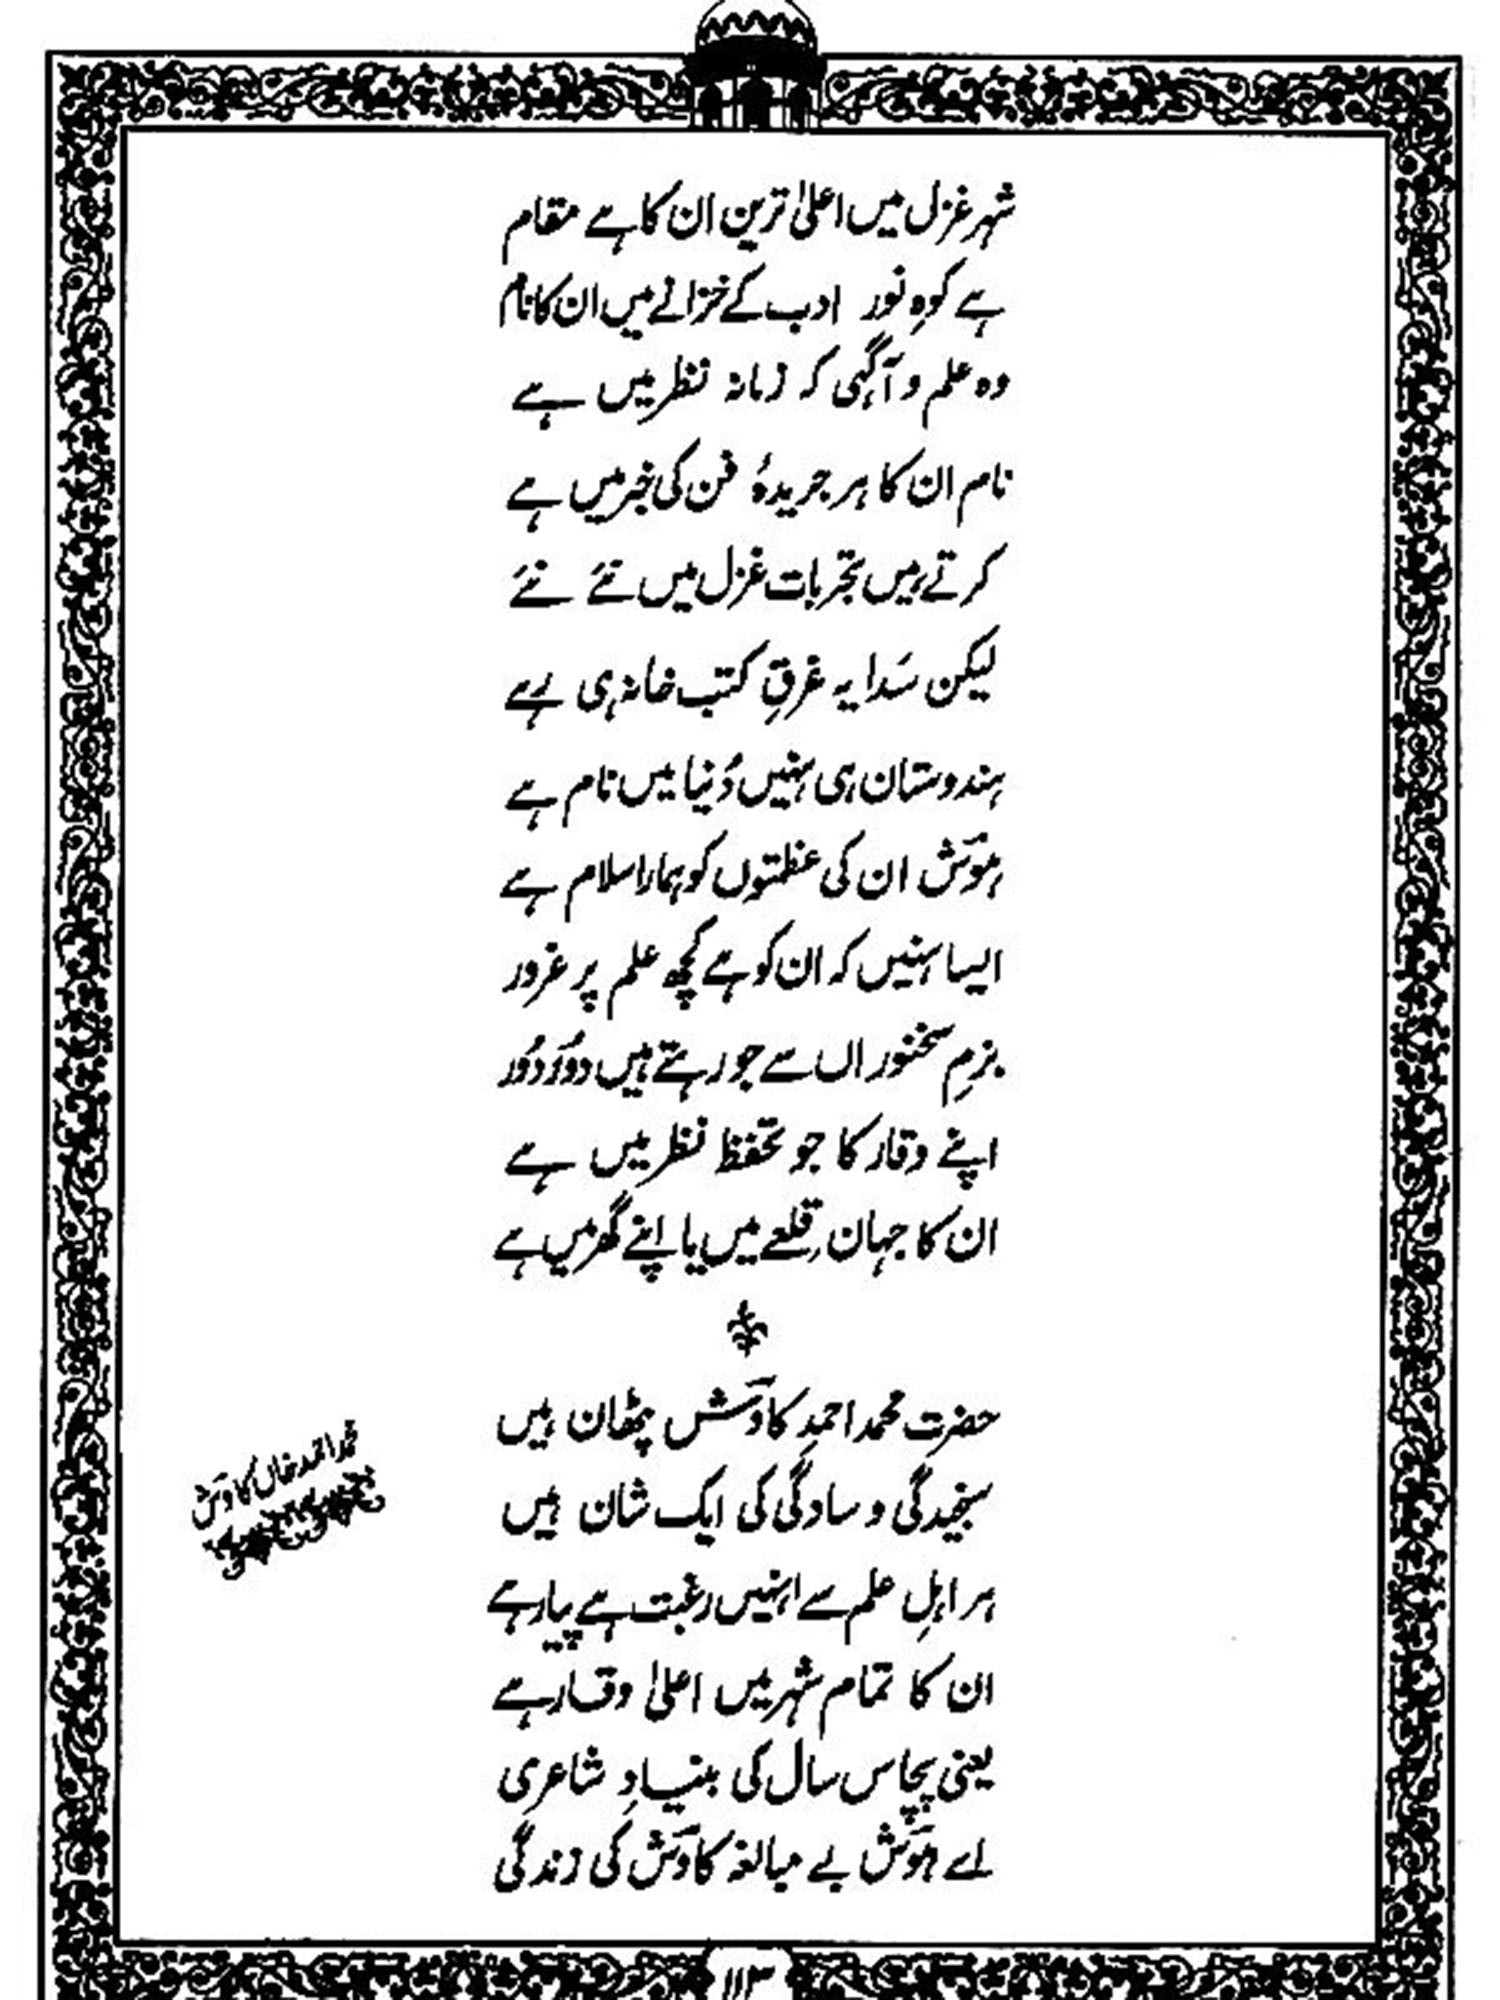 شہرِ غزل میں اعلیٰ ترین ان کا ہے مقام
ہے کوہِ نور ادب کے خزانے میں ان کا نام
وہ علم و آگہی کہ زمانہ نظر میں ہے
نام ان کا ہر جریدۂ فن کی خبر میں ہے
کرتے ہیں تجربات غزل میں نئے نئے
لیکن سَدا یہ غرقِ کتب خانہ ہی رہے
ہندوستان ہی نہیں دُنیا میں نام ہے
ہوش ان کی عظمتوں کو ہمارا سلام ہے
ایسا نہیں کہ ان کو ہے کچھ علم پر غرور
بزمِ سخنوراں سے جو رہتے ہیں دوُر دوُر
اپنے وقار کا جو تحفظ نظر میں ہے
ان کا جہان، قلعے میں یا اپنے گھر میں ہے
حضرت محمد احمدِ کاوش پٹھان ہیں
سنجیدگی و سادگی کی ایک شان ہیں
ہر اہلِ علم سے انہیں رغبت ہے پیار ہے
ان کا تمام شہر میں اعلیٰ وقار ہے
یعنی پچاس سال کی بنیادِ شاعری
اے ہوش بے مبالغہ کاوش کی زندگی
محمد احمد خاں کاوش
۱۱۳